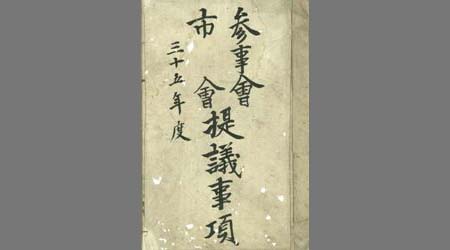 参事會
市會
提議事項
三十五年度